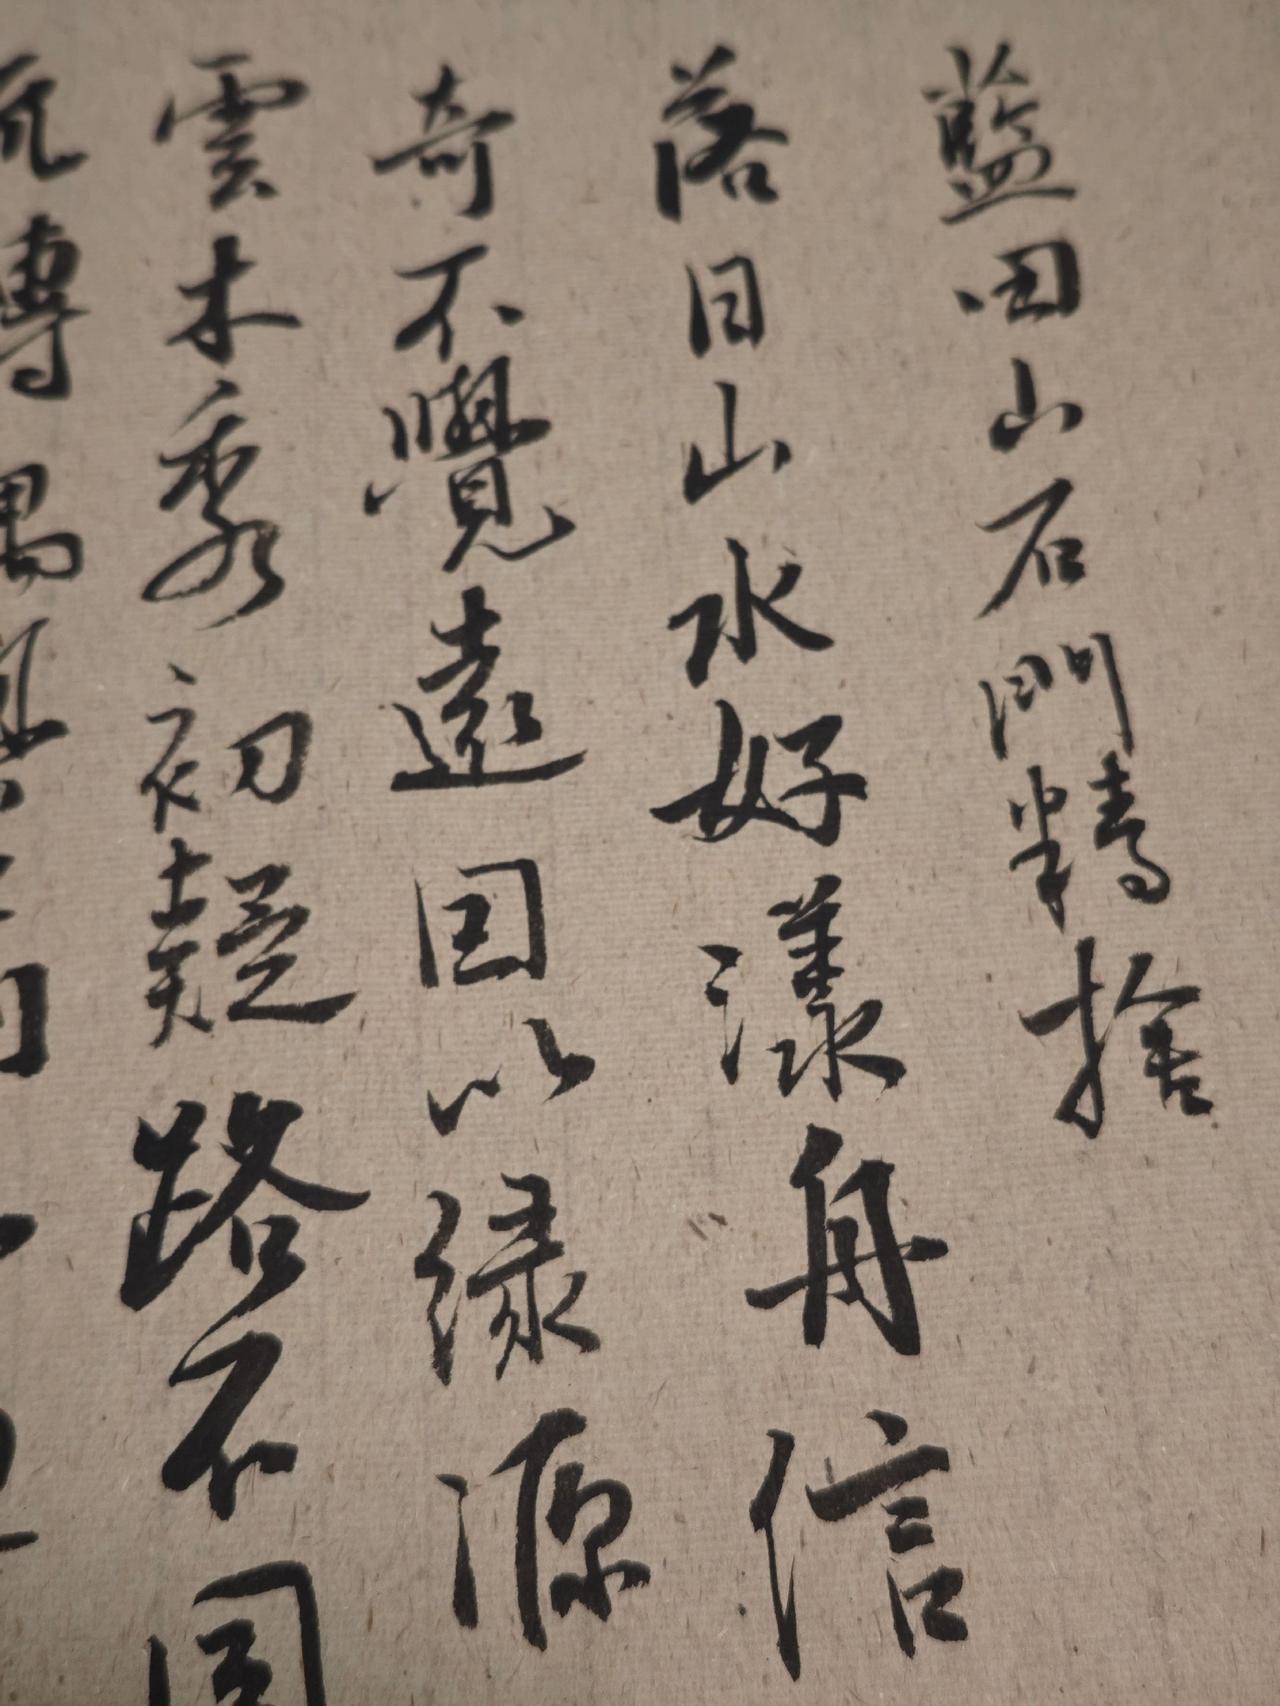 藍田山石門精捨
落日山水好漾舟信
奇不覺遠因以緣源
雲木秀初疑路不同